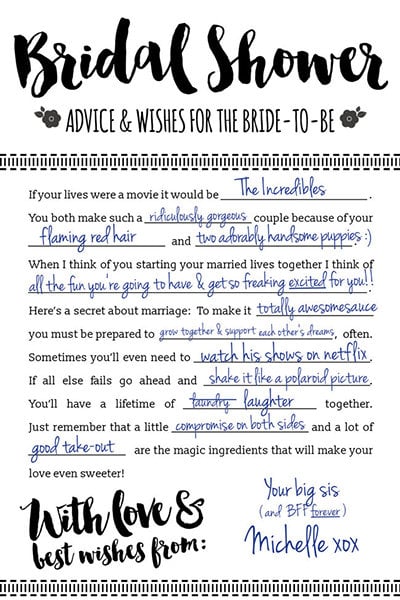 Bridal Shower
ADVICE & WISHES FOR THE BRIDE-TO-BE
If your lives were a movie it would be The Incredibles.
You both make such a ridiculously gorgeous couple because of your
flaming red hair and two adorably handsome puppies :)
When I think of you starting your married lives together I think of
all the fun you're going to have & get so freaking excited for you!!
Here's a secret about marriage: To make it totally awesomesauce
you must be prepared to grow together & support each other's dreams, often.
Sometimes you'll even need to watch his shows on netflix.
If all else fails go ahead and shake it like a polaroid picture.
You'll have a lifetime of laundry laughter together.
Just remember that a little compromise on both sides and a lot of
good take-out are the magic ingredients that will make your
love even sweeter!
With love &
best wishes from:
Your big sis
(and BFF forever)
Michelle xox